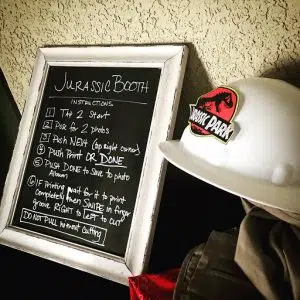 JURASSIC BOOTH
INSTRUCTIONS
1 TAP 2 START
2 Pose for 2 photos
3 Push NEXT (top right corner)
4 PUSH Print OR DONE
5 Push DONE to Save to photo
Album
6 IF Printing wait for it to print
Completely then SWIPE in finger
groove RIGHT to LEFT to cut
DO NOT PULL without Cutting
JURASSIC PARK